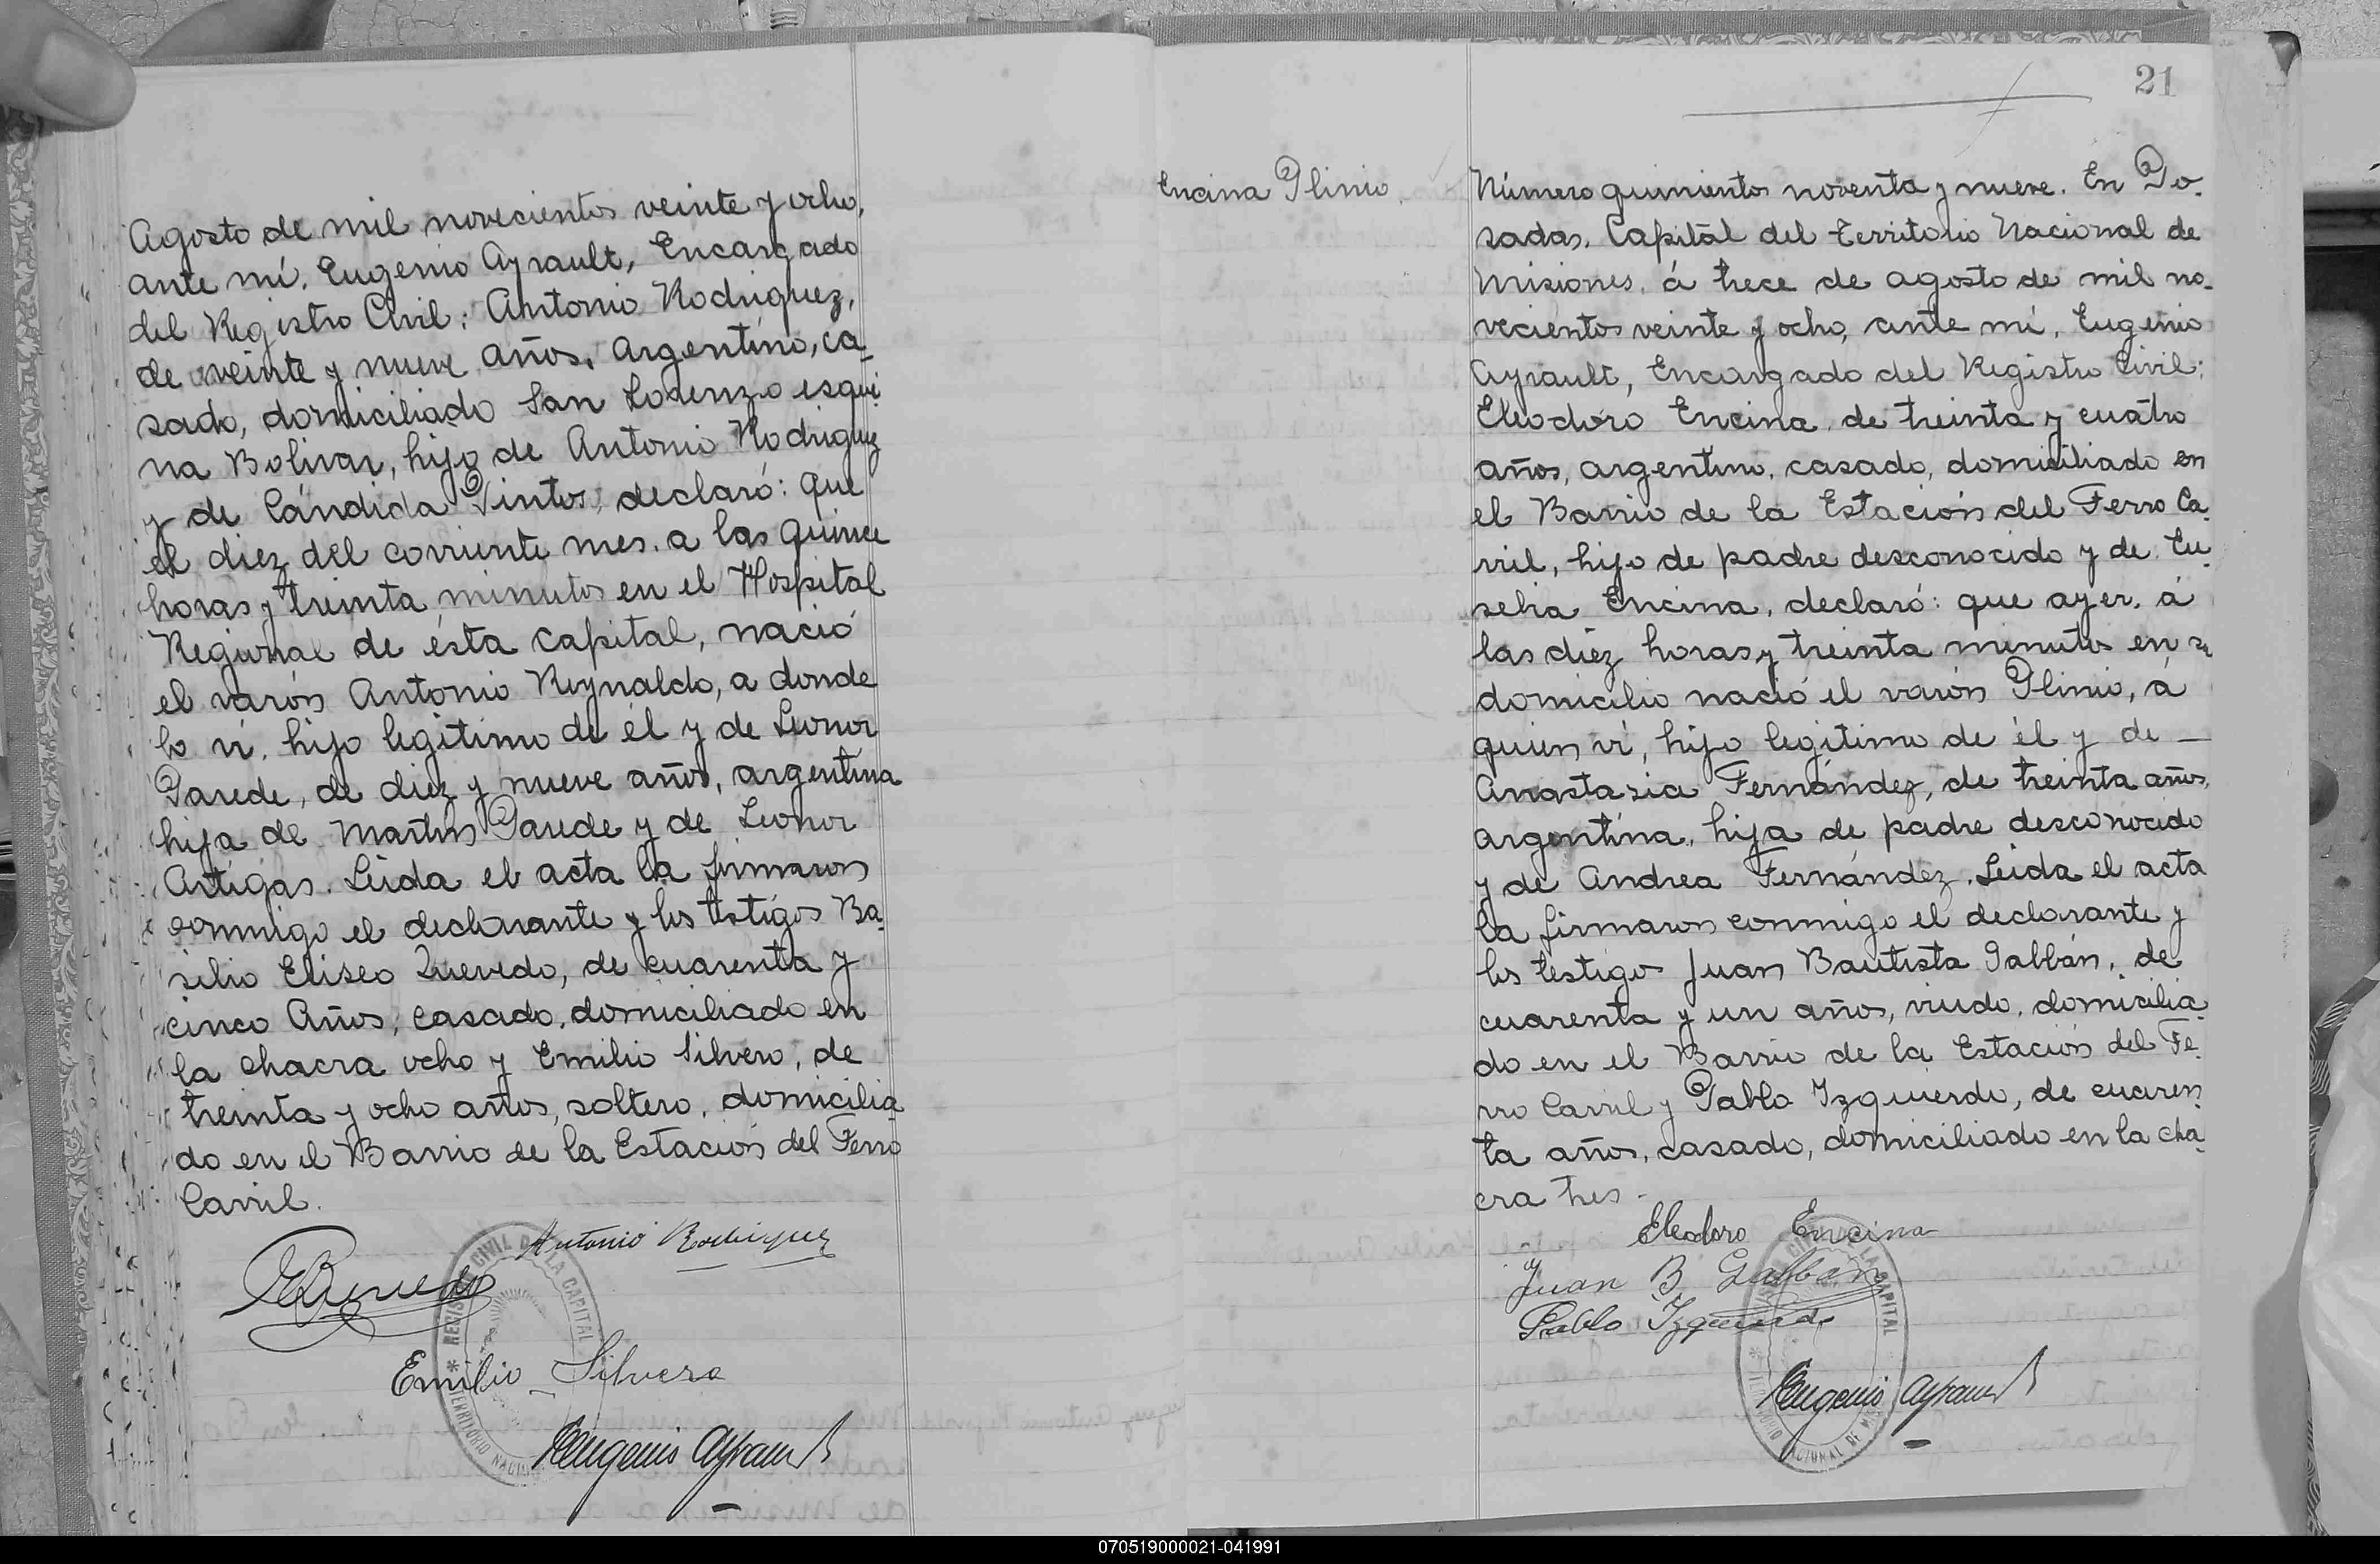 Agosto de mil novecientos veinte y ocho,
ante mí, Eugenio Ayrault, Encargado
del Registro Civil: Antonio Rodriguez,
de veinte y nueve años, argentino, ca-
sado, domiciliado San Lorenzo esqui-
na Bolivar, hijo de Antonio Rodriguez
y de Cándida Pintos, declaró: que
el diez del corriente mes, a las quince
horas y treinta minutos en el Hospital
Regional de ésta capital, nació
el varón Antonio Reynaldo, a donde
lo vi, hijo legítimo de él y de Leonor
Parede, de diez y nueve años, argentina
hija de Martin Parede y de Leonor
Artigas. Leida el acta la firmaron
conmigo el declarante y los testigos Ba-
silio Eliseo Quevedo, de cuarenta y
cinco años, casado, domiciliado en
la chacra ocho y Emilio Silvero, de
treinta y ocho años, soltero, domicilia-
do en el Barrio de la Estación del Ferro
Carril.
Antonio Rodriguez
Emilio Silvero
Eugenio Ayrault
REGISTRO CIVIL DE LA CAPITAL
TERRITORIO NACIONAL
21
Encina Plinio.
Número quinientos noventa y nueve. En Po-
sadas, Capital del Territorio Nacional de
Misiones, á trece de agosto de mil no-
vecientos veinte y ocho, ante mí, Eugenio
Ayrault, Encargado del Registro Civil:
Eleodoro Encina, de treinta y cuatro
años, argentino, casado, domiciliado en
el Barrio de la Estación del Ferro Ca-
rril, hijo de padre desconocido y de Eu-
sebia Encina, declaró: que ayer, á
las diez horas y treinta minutos en su
domicilio nació el varón Plinio, á
quien vi, hijo legítimo de él y de —
Anastasia Fernández, de treinta años,
argentina, hija de padre desconocido
y de Andrea Fernández. Leida el acta
la firmaron conmigo el declarante y
los testigos Juan Bautista Galbán, de
cuarenta y un años, viudo, domicilia-
do en el Barrio de la Estación del Fe-
rro Carril y Pablo Izquierdo, de cuaren-
ta años, casado, domiciliado en la cha-
cra tres.
Eleodoro Encina
Juan B. Galban
Pablo Izquierdo
Eugenio Ayrault
070519000021-041991